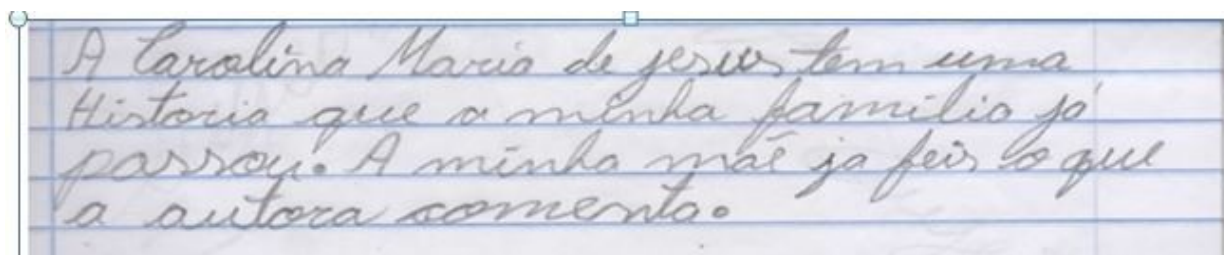 A Carolina Maria de jesus tem uma
Historia que a minha familia já
passou. A minha mãe ja feis o que
a autora comenta.